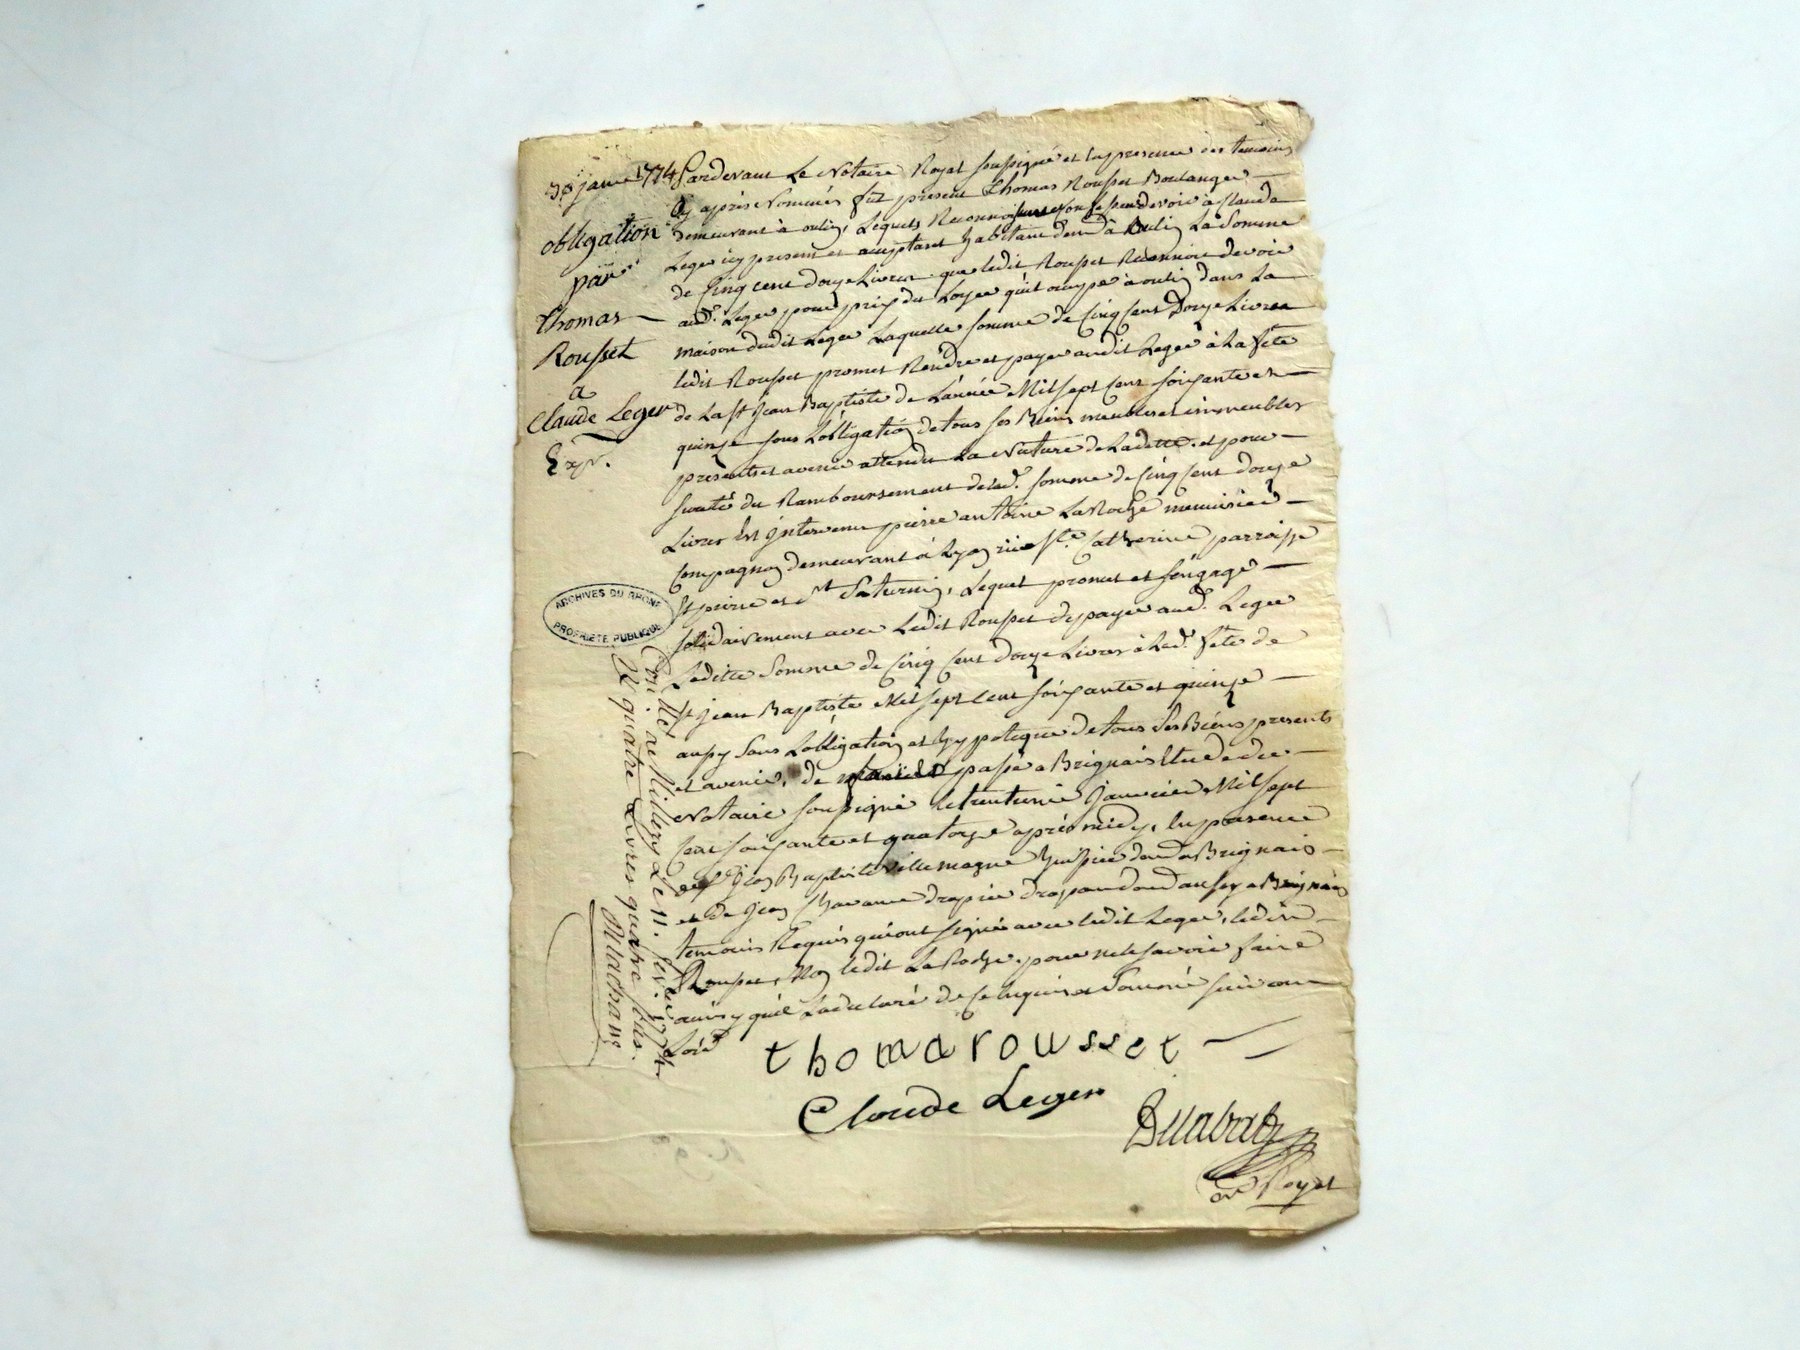 30 janv 1774
obligation
par
Thomas
Rousset
a
Claude Leger
Exp.
Pardevant Le Notaire Royal soussigné et En presence des temoins
Cy après Nommés fut present Thomas Rousset Boulanger
demeurant à oulin, Lequels Reconnoit devoir à Claude
Leger icy present et acceptant habitant dem.t à oulin La Somme
de Cinq cent douze Livres que ledit Rousset Reconnoit devoir
aud.t Leger pour prix du Loyer qu'il occupe à oulin dans La
maison dudit Leger Laquelle somme de Cinq Cent Douze Livres
ledit Rousset promet Rendre et payer audit Leger à La fête
de La St Jean Baptiste de L'année Mil sept Cent soixante et
quinze sous L'obligation de tous ses Biens meubles et immeubles
présents et avenir attendu La Nature de La dette. et pour
sureté du Remboursement de lad.e somme de Cinq Cent douze
Livres Est Intervenu pierre antoine LaRoche menuisier
Compagnon demeurant à Lyon rüe Ste Catherine parroisse
St pierre et St Saturnin, Lequel promet et s'engage
solidairement avec Ledit Rousset de payer aud.t Leger
Laditte Somme de Cinq Cent Douze Livres à Lad.e fête de
St Jean Baptiste Mil sept Cent soixante et quinze
aussy Sous L'obligation et hypoteque de tous Ses Biens presents
et avenir, de passé a Brignais Etude du
Notaire soussigné le trentième Janvier Mil sept
Cent soixante et quatorze après midy, En presence
de Sr Jean Baptiste Villemagne huissier dem.t a Brignais
et de Jean drapier drapant dem.t aussy a Brignais
temoins Requis qui ont signé avec ledit Leger, ledit
Rousset, Non ledit LaRoche, pour ne le savoir faire
ainsy qu'il L'a declaré de ce Enquis et Sommé suivant
Loix
ARCHIVES DU RHÔNE
PROPRIÉTÉ PUBLIQUE
Con.llé a Millery Le 11. fev.er 1774.
R quatre Livres quatre sols.
thomarousset
Claude Leger
n.re Royal